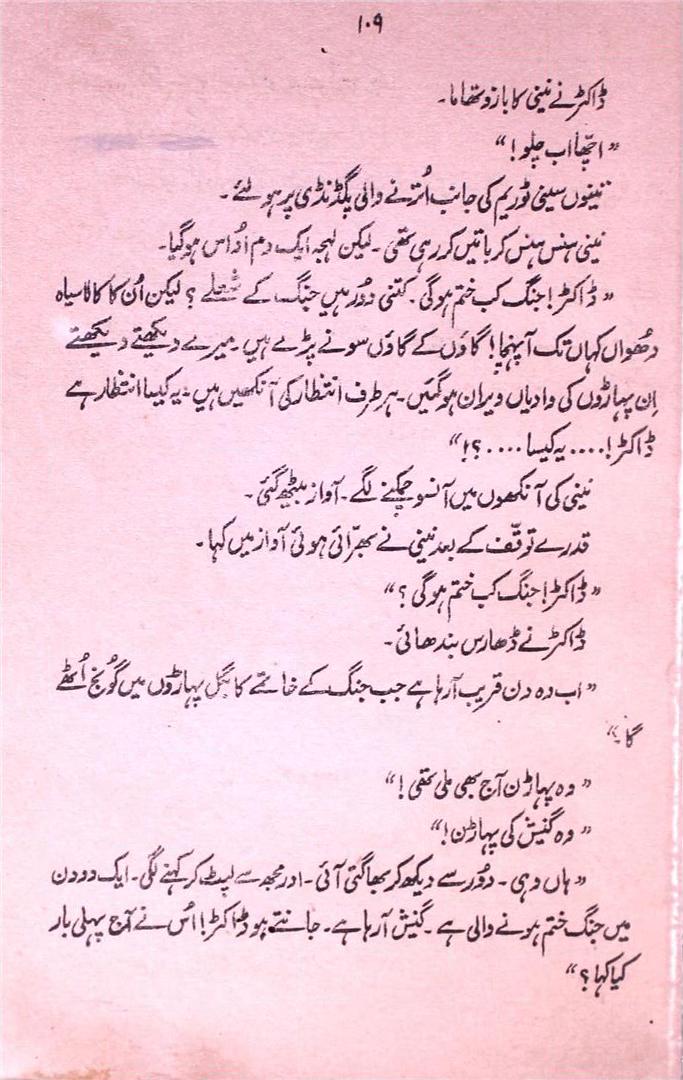 ۱۰۹
ڈاکٹر نے نینی کا بازو تھاما۔
”اچھا اب چلو!“
تینوں سینی ٹوریم کی جانب اُترنے والی پگڈنڈی پر ہو لئے۔
نینی ہنس ہنس کر باتیں کر رہی تھی۔ لیکن لہجہ ایک دم اُداس ہو گیا۔
”ڈاکٹر! جنگ کب ختم ہو گی۔ کتنی دُور ہیں جنگ کے شعلے؟ لیکن اُن کا کالا سیاہ
دھُواں کہاں تک آ پہنچا! گاؤں کے گاؤں سونے پڑے ہیں۔ میرے دیکھتے دیکھتے
اِن پہاڑوں کی وادیاں ویران ہو گئیں۔ ہر طرف انتظار کی آنکھیں ہیں۔ یہ کیسا انتظار ہے
ڈاکٹر!.... یہ کیسا....؟!“
نینی کی آنکھوں میں آنسو چمکنے لگے۔ آواز بیٹھ گئی۔
قدرے توقّف کے بعد نینی نے بھرّائی ہوئی آواز میں کہا۔
”ڈاکٹر! جنگ کب ختم ہو گی؟“
ڈاکٹر نے ڈھارس بندھائی۔
”اب وہ دن قریب آ رہا ہے جب جنگ کے خاتمے کا بگل پہاڑوں میں گُونج اُٹھے
گا۔“
”وہ پہاڑن آج بھی ملی تھی!“
”وہ گنیش کی پہاڑن!“
”ہاں وہی۔ دُور سے دیکھ کر بھاگتی آئی۔ اور مجھ سے لپٹ کر کہنے لگی۔ ایک دو دن
میں جنگ ختم ہونے والی ہے۔ گنیش آ رہا ہے۔ جانتے ہو ڈاکٹر! اُس نے آج پہلی بار
کیا کہا؟“